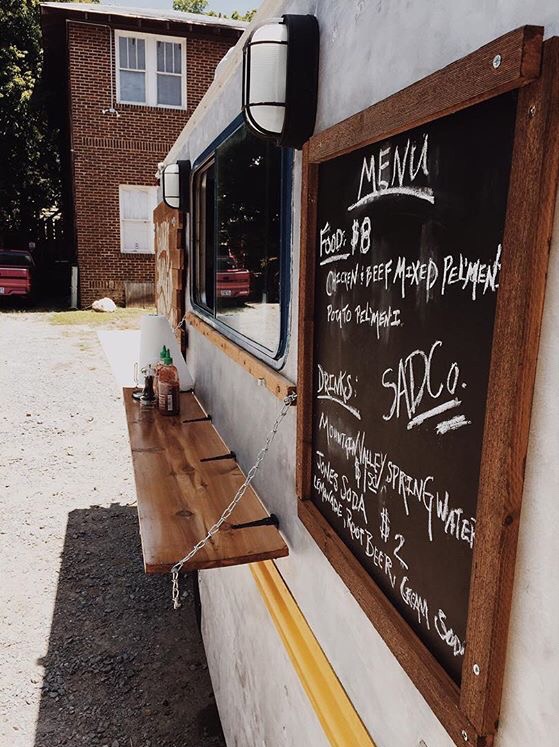 MENU
FOOD: $8
CHICKEN & BEEF MIXED PEL'MENI
POTATO PEL'MENI
DRINKS:
SADCO.
MOUNTAIN VALLEY SPRING WATER
JONES SODA $2
LEMONADE, ROOT BEER, CREAM SODA